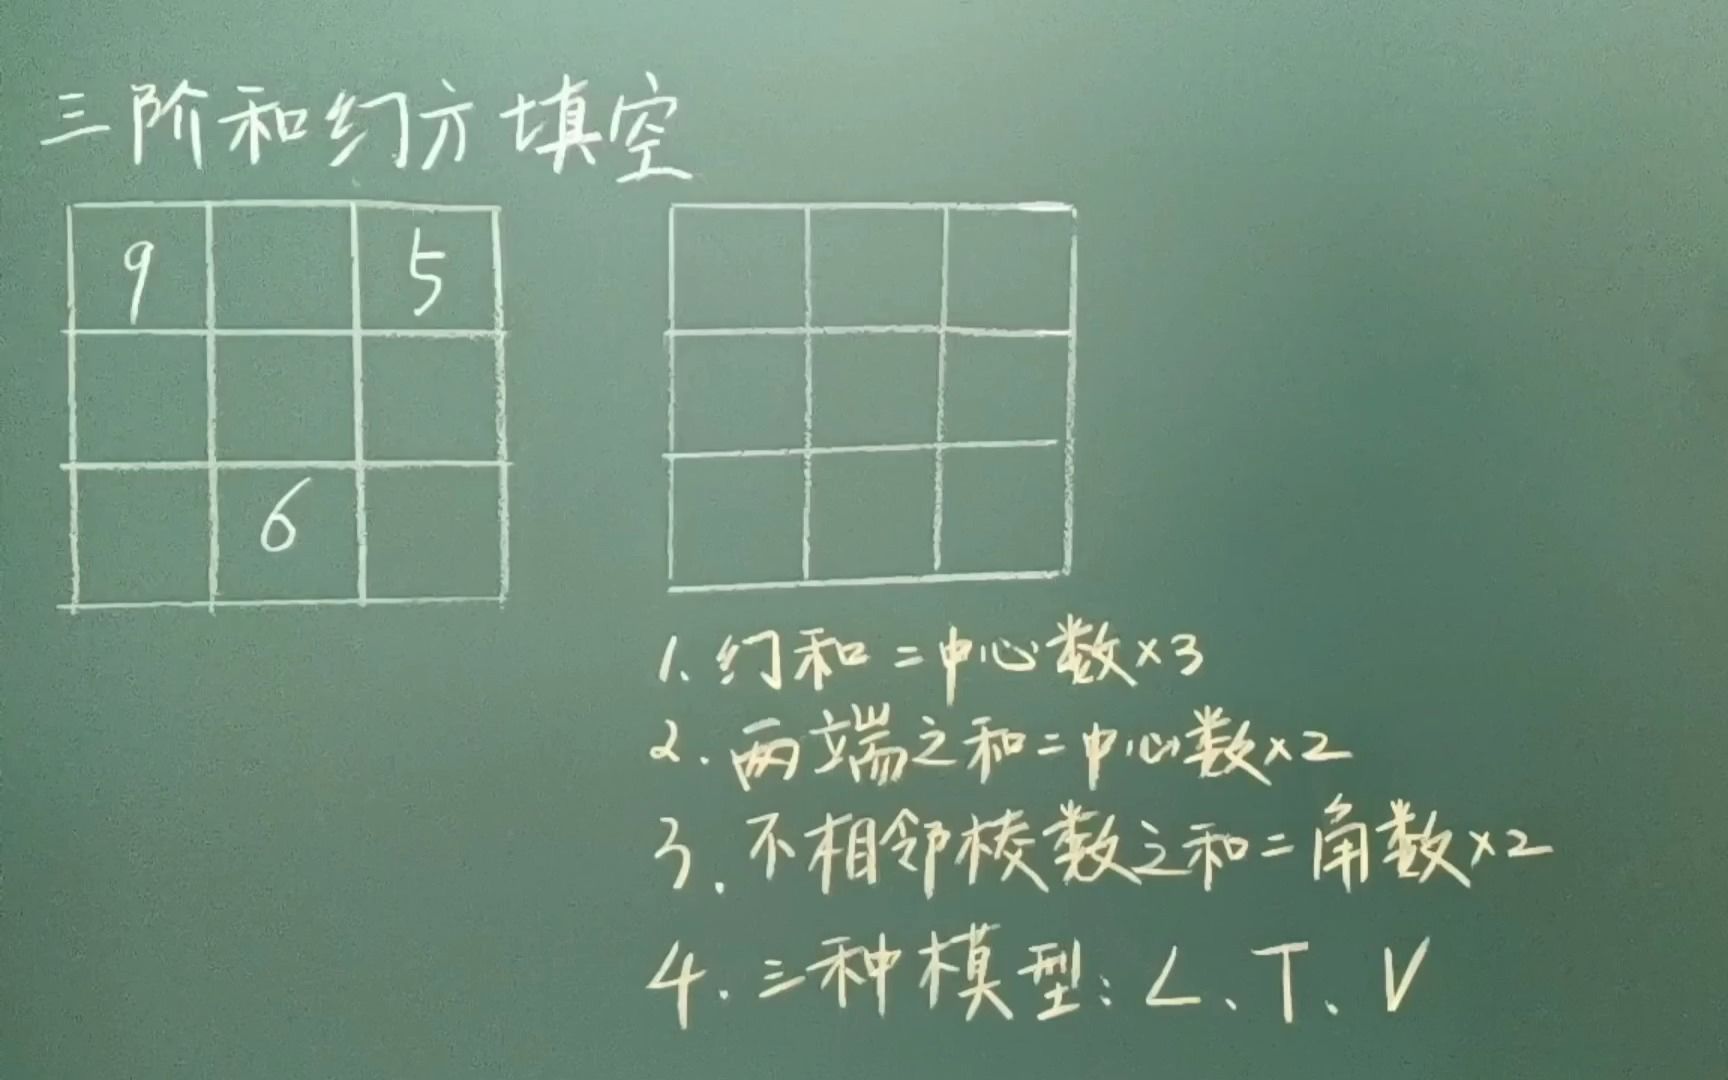 三阶和幻方填空
9 5
6
1.幻和=中心数×3
2.两端之和=中心数×2
3.不相邻棱数之和=角数×2
4.三种模型:L、T、V